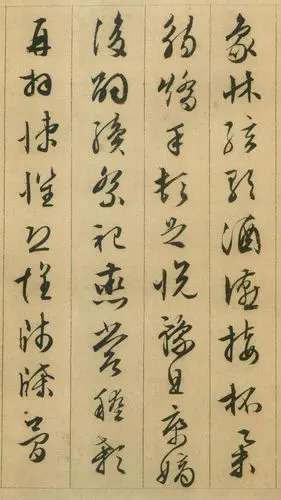 象牀絃歌酒讌接杯舉
觴矯手頓足悅豫且康嫡
後嗣續祭祀烝嘗稽顙
再拜悚懼恐惶牋牒簡